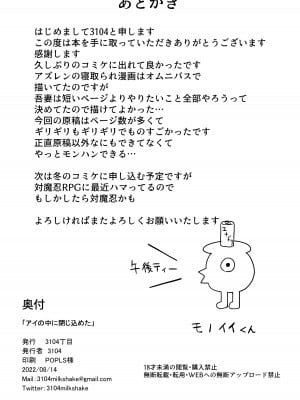 あとがき
はじめまして3104と申します
この度は本を手に取っていただきありがとうございます
感謝します
久しぶりのコミケに出れて良かったです
アズレンの寝取られ漫画はオムニバスで
描いてたのですが
吾妻は短いページよりやりたいこと全部やろうって
決めてたので描けてよかった…
今回の原稿はページ数が多くて
ギリギリもギリギリでものすごかったです
正直原稿以外なにもできてなくて
やっとモンハンできる…
次は冬のコミケに申し込む予定ですが
対魔忍RPGに最近ハマってるので
もしかしたら対魔忍かも
よろしければまたよろしくお願いいたします
午後ティー
モノイイくん
奥付
「アイの中に閉じ込めた」
発行 3104丁目
発行者 3104
印刷 POPLS様
2022/08/14
Mail : 3104milkshake@gmail.com
Twitter : 3104milkshake
18才未満の閲覧・購入禁止
無断転載・転用・WEBへの無断アップロード禁止